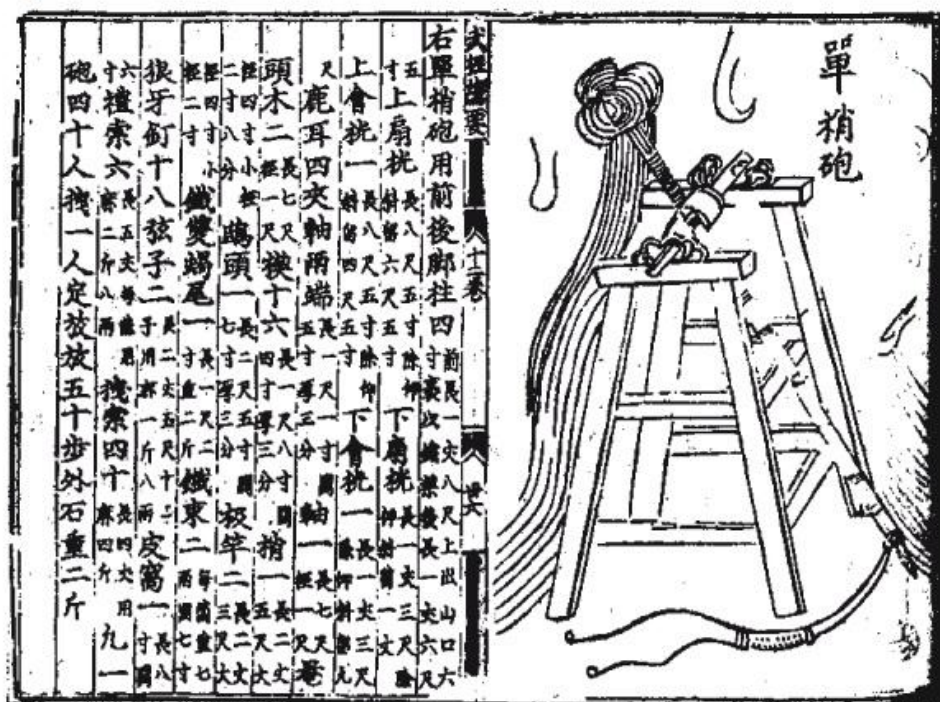 單梢砲
武經總要
十二卷
右單梢砲用前後脚柱四前長一丈八尺上出山口六寸後長一丈六尺
五寸上扇桄長八尺五寸除仰斜留六尺五寸下扇桄長一丈三尺除仰斜留一丈
上會桄一長八尺五寸除仰斜留四尺五寸下會桄一長一丈三尺除仰斜留九
尺鹿耳四夾軸兩端長一尺一寸闊五寸厚三分軸一長七尺徑一尺罨
頭木二長七尺徑一尺楔十六長一尺八寸闊四寸厚三分梢一長二丈五尺大
徑四寸小徑二寸八分鴟頭一長二尺五寸闊七寸厚三分极竿二長二丈三尺大
徑四寸小徑二寸鐵雙蝎尾一長一尺二寸重二斤鐵束二每箇重七兩圍七寸
狼牙釘十八弦子二長二丈五尺十二子用麻一斤八兩皮窩一長八寸闊
六寸索六長五丈每條用麻二斤八兩拽索四十長四丈用麻四斤凡一
砲四十人拽一人定放放五十步外石重二斤